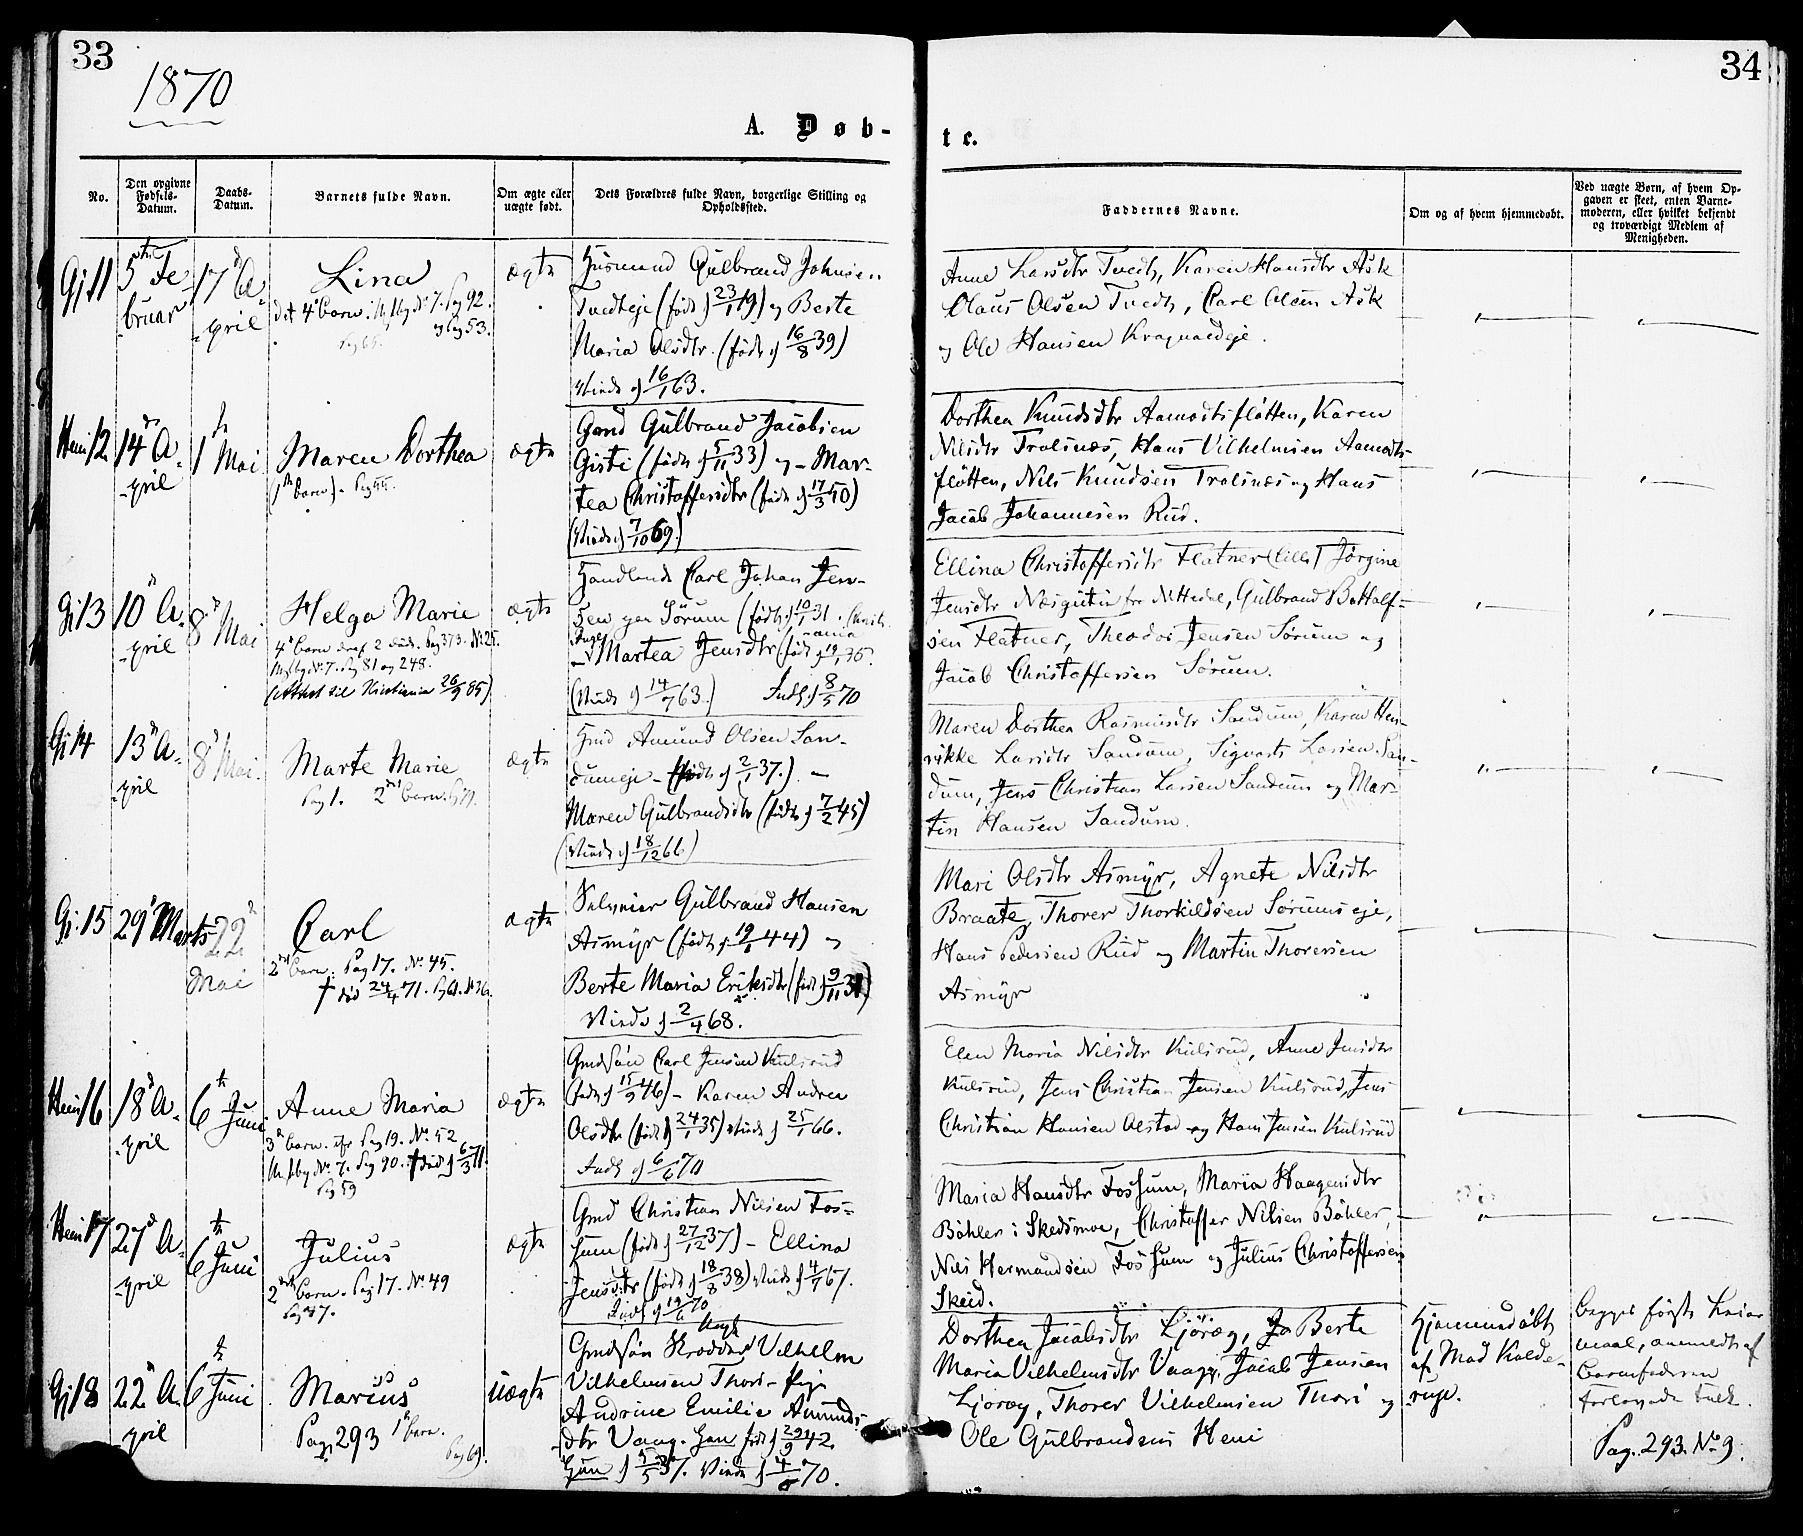 33
34
1870
A. Døb-
te.
No.
Den opgivne Fødsels-Datum.
Daabs-Datum.
Barnets fulde Navn.
Om ægte eller uægte født.
Dets Forældres fulde Navn, borgerlige Stilling og Opholdssted.
Faddernes Navne.
Om og af hvem hjemmedøbt.
Ved uægte Børn, af hvem Op-
gaven er skeet, enten Barne-
moderen, eller hvilket bekjendt
og troværdigt Medlem af
Menigheden.
Gj 11
5te Fe-
bruar
17d A-
pril
Lina
det 4de barn. No 7. Pag 92.
og Pag 53.
ægte
Husmand Gulbrand Johnsen
Tvedteje (født 23/1 19) og Berte
Maria Olsdtr. (født 16/8 39)
Viede 16/1 63.
Anne Larsdtr Tvedt, Karen Hansdtr Ask
Olaus Olsen Tvedt, Carl Olsen Ask
og Ole Hansen
Hem 12.
14d A-
pril
1te Mai
Maren Dorthea
(1te barn).
ægte
Gmd Gulbrand Jacobsen
Gisti (født 5/11 33) og Mar-
tea Christoffersdtr (født 17/3 50)
(Viede 7/10 69.)
Dorthea Knudsdtr Aamodtsfløtten, Karen
Nilsdtr Tralsnæs, Hans Vilhelmsen Aamodts-
fløtten, Nils Knudsen Tralsnæs og Hans
Jacob Johannesen Rud.
Gj 13
10d A-
pril
8d Mai
Helga Marie
4de barn deraf 2 døde. Pag 373. No 25.
No 7. Pag 81 og 248.
(Attest til Kristiania 26/9 85)
ægte
Handlende Carl Johan Jen-
sen Sørum (født 10/1 31
Martea Jensdtr (født 19/1 35.
(Viede 14/7 63.) Indl. 8/5 70
Ellina Christoffersdtr Flatner Jørgine
Jensdtr fra Nittedal, Gulbrand Bottolf-
sen Flatner, Theodor Jensen Sørum og
Jacob Christoffersen Sørum.
Gj 14
13d A-
pril
8d Mai.
Marte Marie
Pag 1. 2det barn.
ægte
Gmd Amund Olsen San-
dumeje (født 2/1 37.)
Maren Gulbrandsdtr (født 7/2 45)
(Viede 18/12 66)
Maren Dorthea Rasmusdtr Sandum, Karen Hen-
rikke Larsdtr Sandum, Sigvart Larsen San-
dum, Jens Christian Larsen Sandum og Mar-
tin Hansen Sandum.
Gj. 15
29d Marts
22d
Mai
Carl
2det barn. Pag 17. No 45.
† død 24/4 71.
ægte
Gulbrand Hansen
Asmyr (født 19/1 44) og
Berte Maria Eriksdtr (født 9/11 31)
Viede 2/4 68.
Mari Olsdtr Asmyr, Agnete Nilsdtr
Braate, Thorer Thorkildsen Sørumseje,
Hans Pedersen Rud og Martin Thorersen
Asmyr
Hem 16
18d A-
pril
6te Juni
Anne Maria
3de barn. Pag 19. No 52
No 7. Pag 90. † død 6/3 71.
Pag 59
ægte
Gmdsøn Carl Jensen Kulsrud
(født 15/9 46) Karen Andrea
Olsdtr (født 24/1 35) Viede 25/1 66.
Indl 6/6 70
Elen Maria Nilsdtr Kulsrud, Anne Jensdtr
Kulsrud, Jens Christian Jensen Kulsrud, Jens
Christian Hansen Olstad og Hans Jensen Kulsrud
Hem 17
27d A-
pril
6te Juni
Julius
2det barn. Pag 17. No 49
Pag 47.
ægte
Gmd Christian Nilsen Fos-
sum (født 27/12 37) Ellina
Jensdtr (født 18/8 38) Viede 4/7 67.
Indl 19/6 70
Maria Hansdtr Fossum, Maria Haagensdtr
Bøhler i Skedsmoe, Christoffer Nilsen Bøhler,
Nils Hermandsen Fossum og Julius Christoffersen
Skeid.
Gj 18
22d A-
pril
6te Juni
Marius
Pag. 293 1te barn.
Pag 69.
uægte
Gmdsøn Vilhelm
Vilhelmsen Thori Pige
Andrine Emilie Amunds-
dtr Vaag. Han født 29/9 42.
Hun 5/5 37. Viede 4/8 70.
Dorthea Jacobsdtr Ljøræg, Berte
Maria Vilhelmsdtr Vaag, Jacob Jensen
Ljøræg, Thorer Vilhelmsen Thori og
Ole Gulbrandsen Hem
Hjemmedøbt
af Mad Kolde-
rup.
begges første Leier-
maal, anmeldt af
barnefaderen
Pag. 293. No 9.